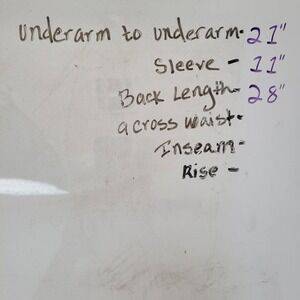 Underarm to underarm- 21"
Sleeve - 11"
Back Length- 28"
across waist-
Inseam-
Rise -